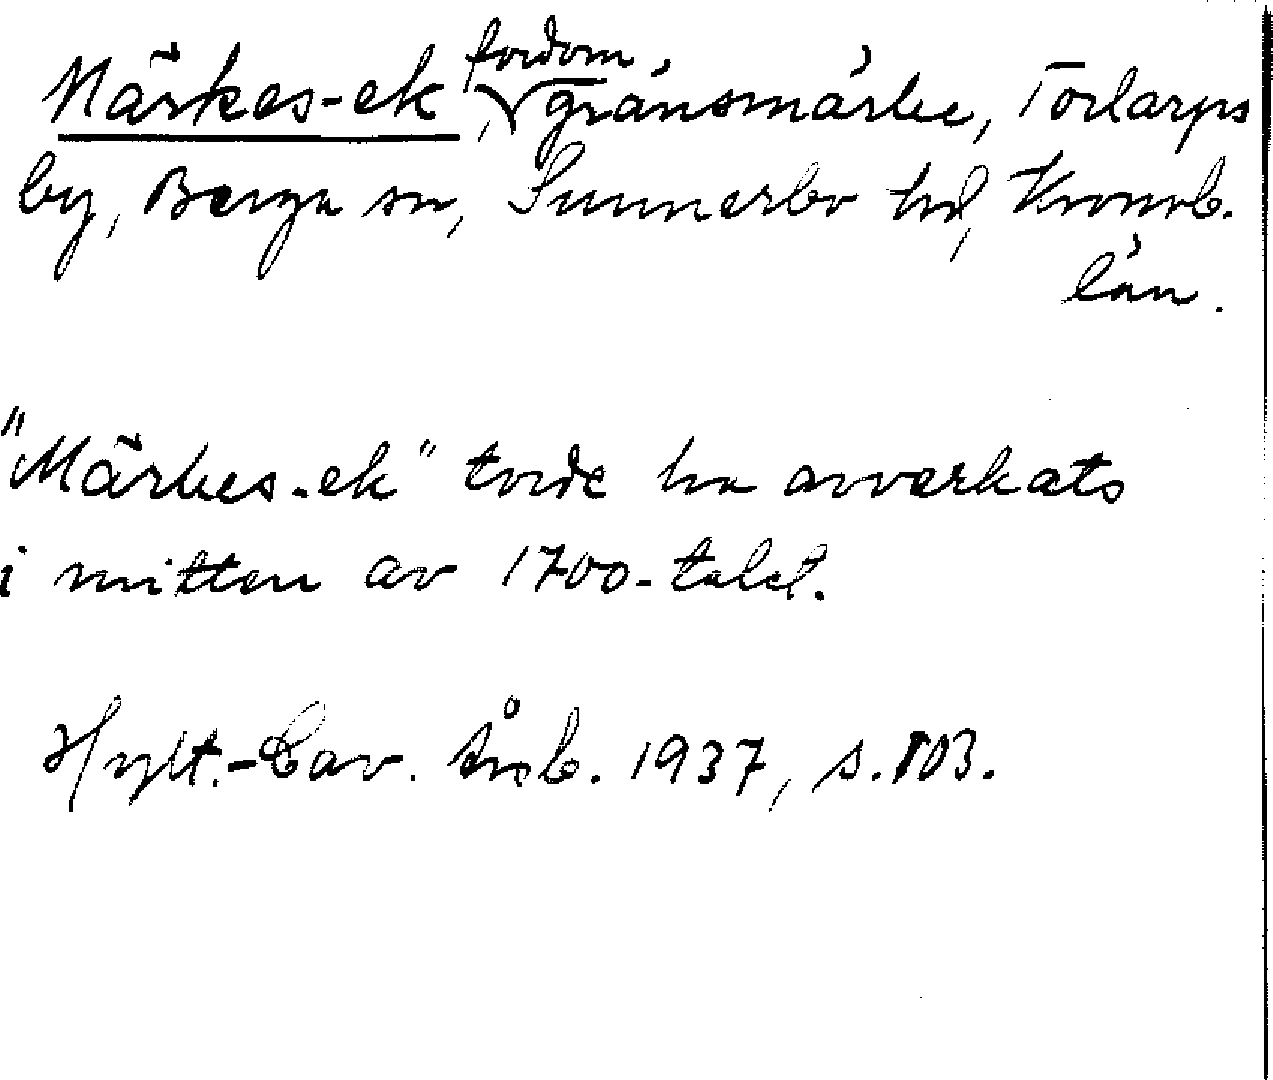 Märkes-ek, fordom gränsmärke, Torlarps
by, Berga sn, Sunnerbo hd, Kronob.
län.
"Märkes-ek" torde ha avverkats
i mitten av 1700-talet.
Hylt.-Cav. årsb. 1937, s. 103.